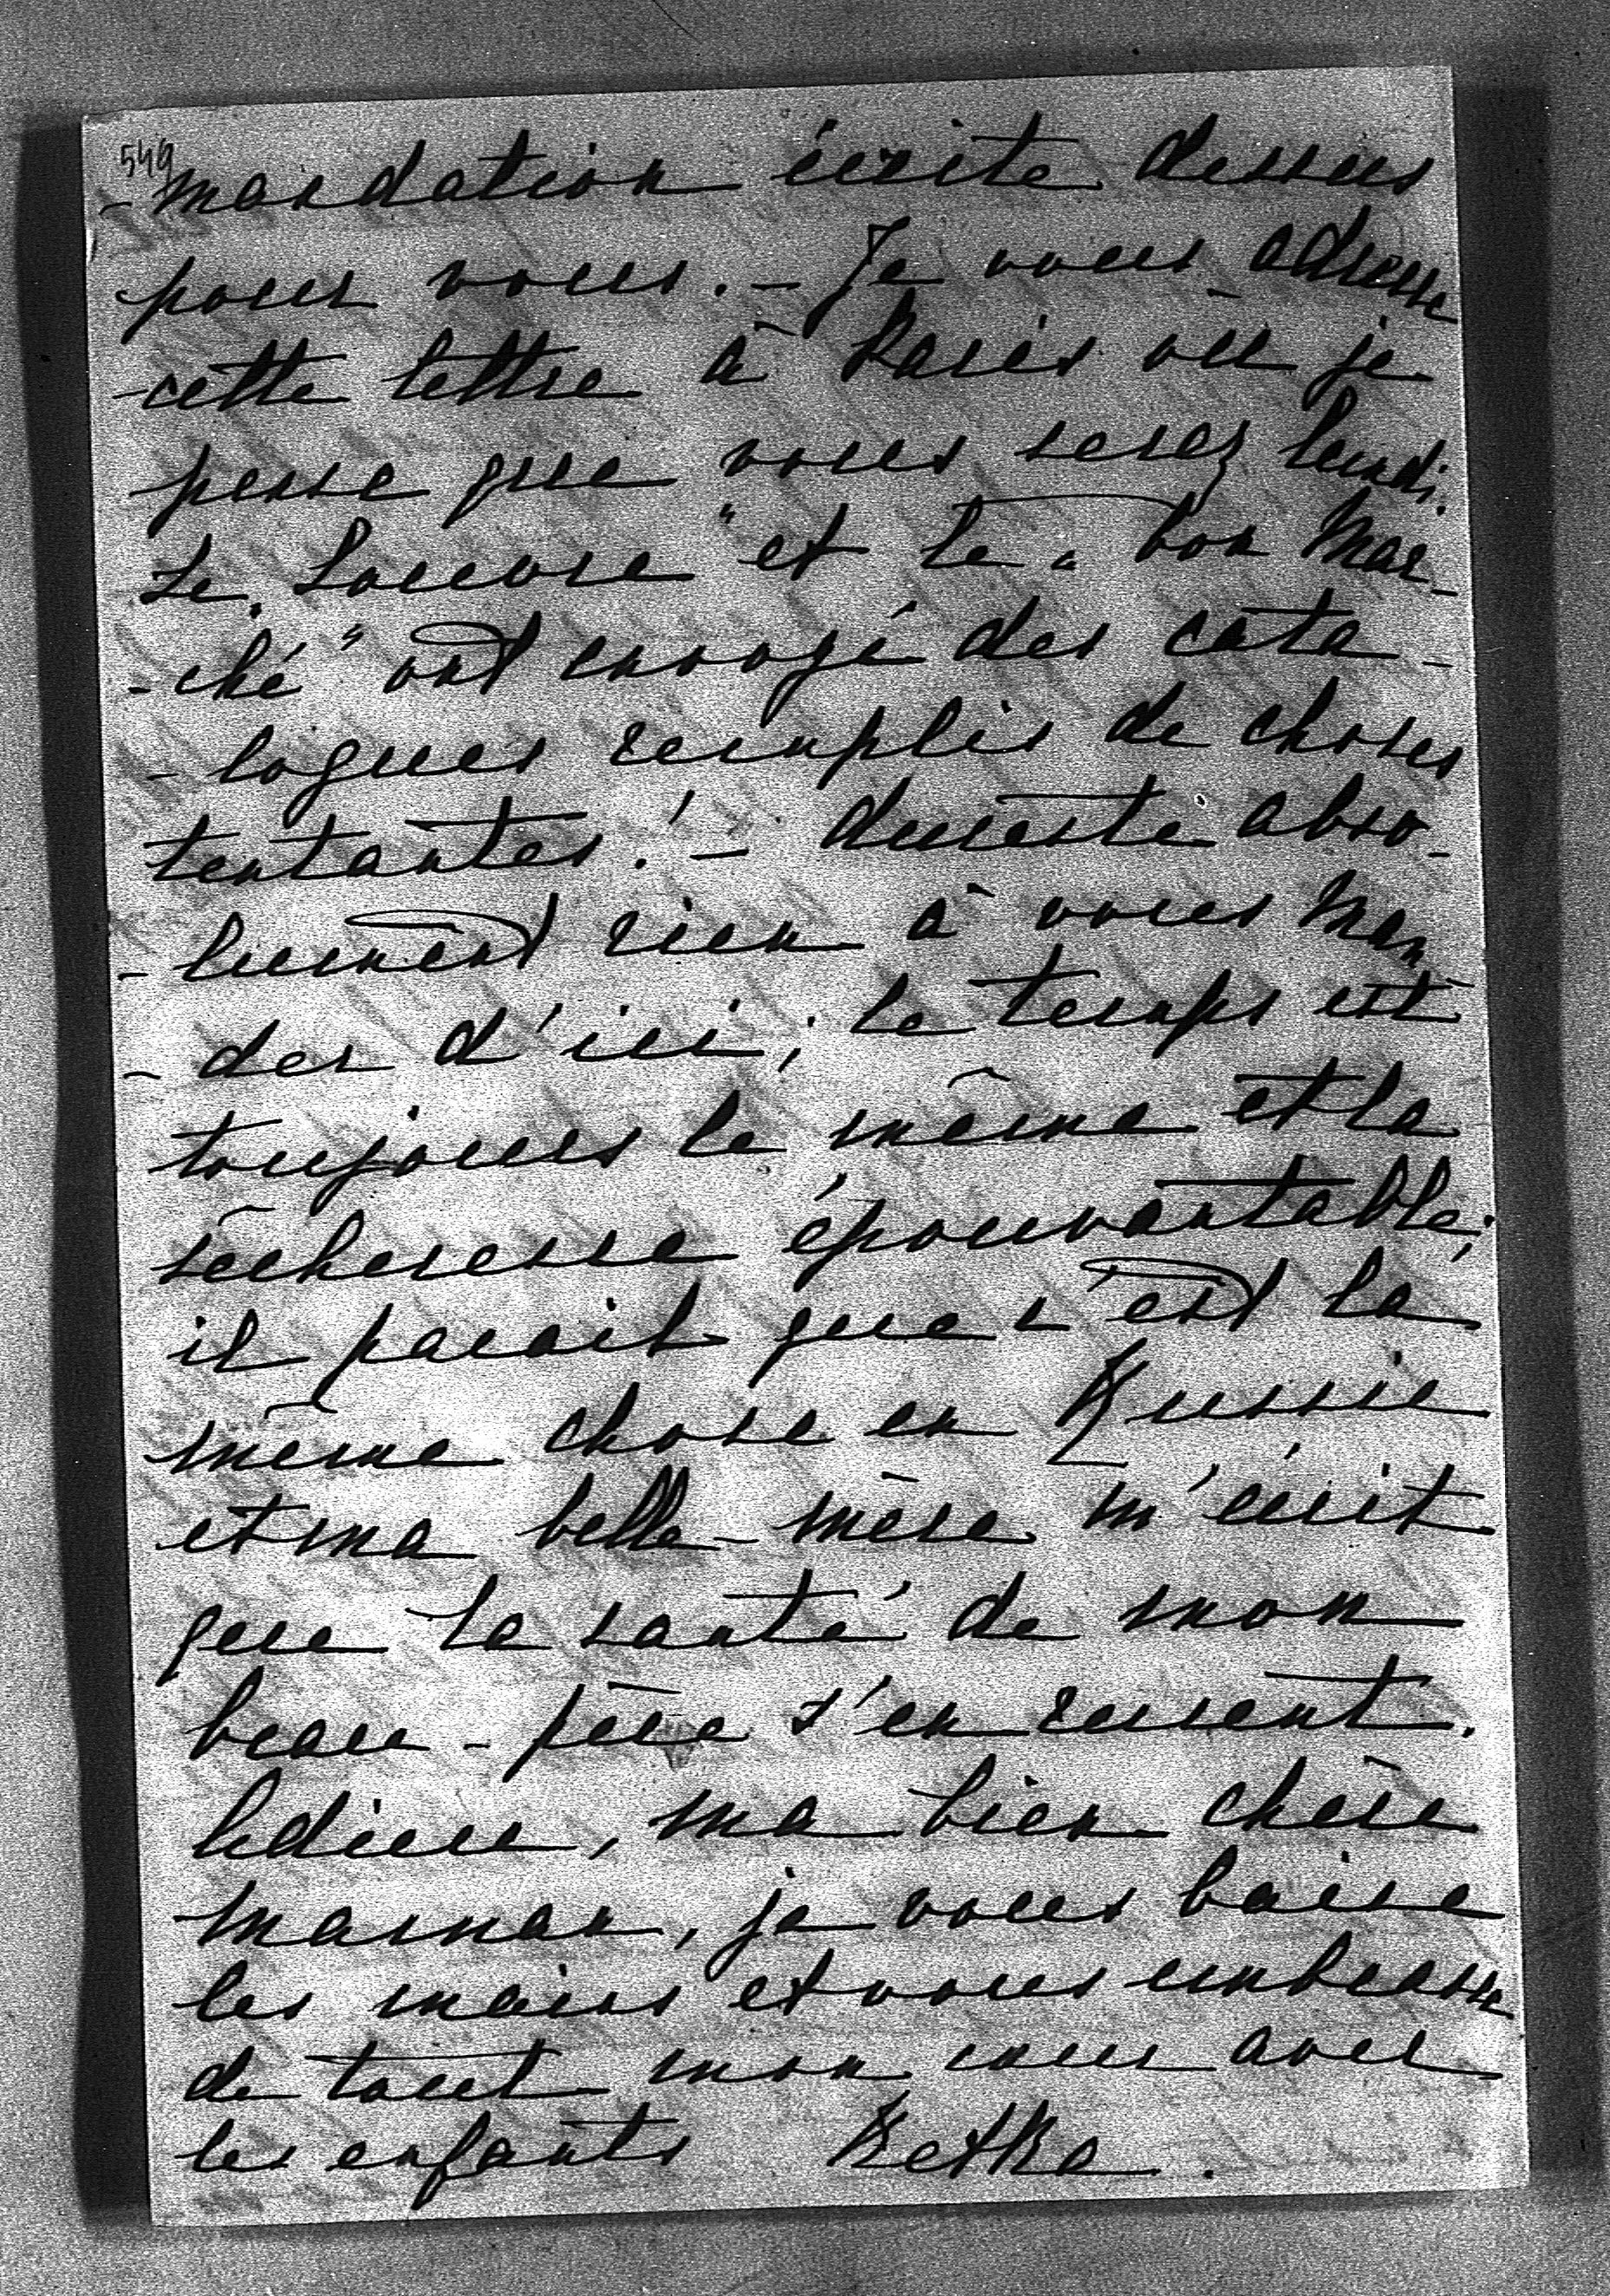 549
- mandation écrite dessus
pour vous. - Je vous adresse
cette lettre à Paris où je
pense que vous serez lundi.
Le "Louvre" et le "bon Mar-
- ché" ont envoyé des cata-
- logues remplis de choses
tentantes! - dureste abso-
- lument rien à vous man-
- der d'ici; le temps est
toujours le même et la
sécheresse épouvantable;
il parait que c'est la
même chose en Russie
et ma belle-mère m'écrit
que la santé de mon
beau-père s'en ressent.
Adieu, ma bien chère
maman, je vous baise
les mains et vous embrasse
de tout mon cœur avec
les enfants Betka.